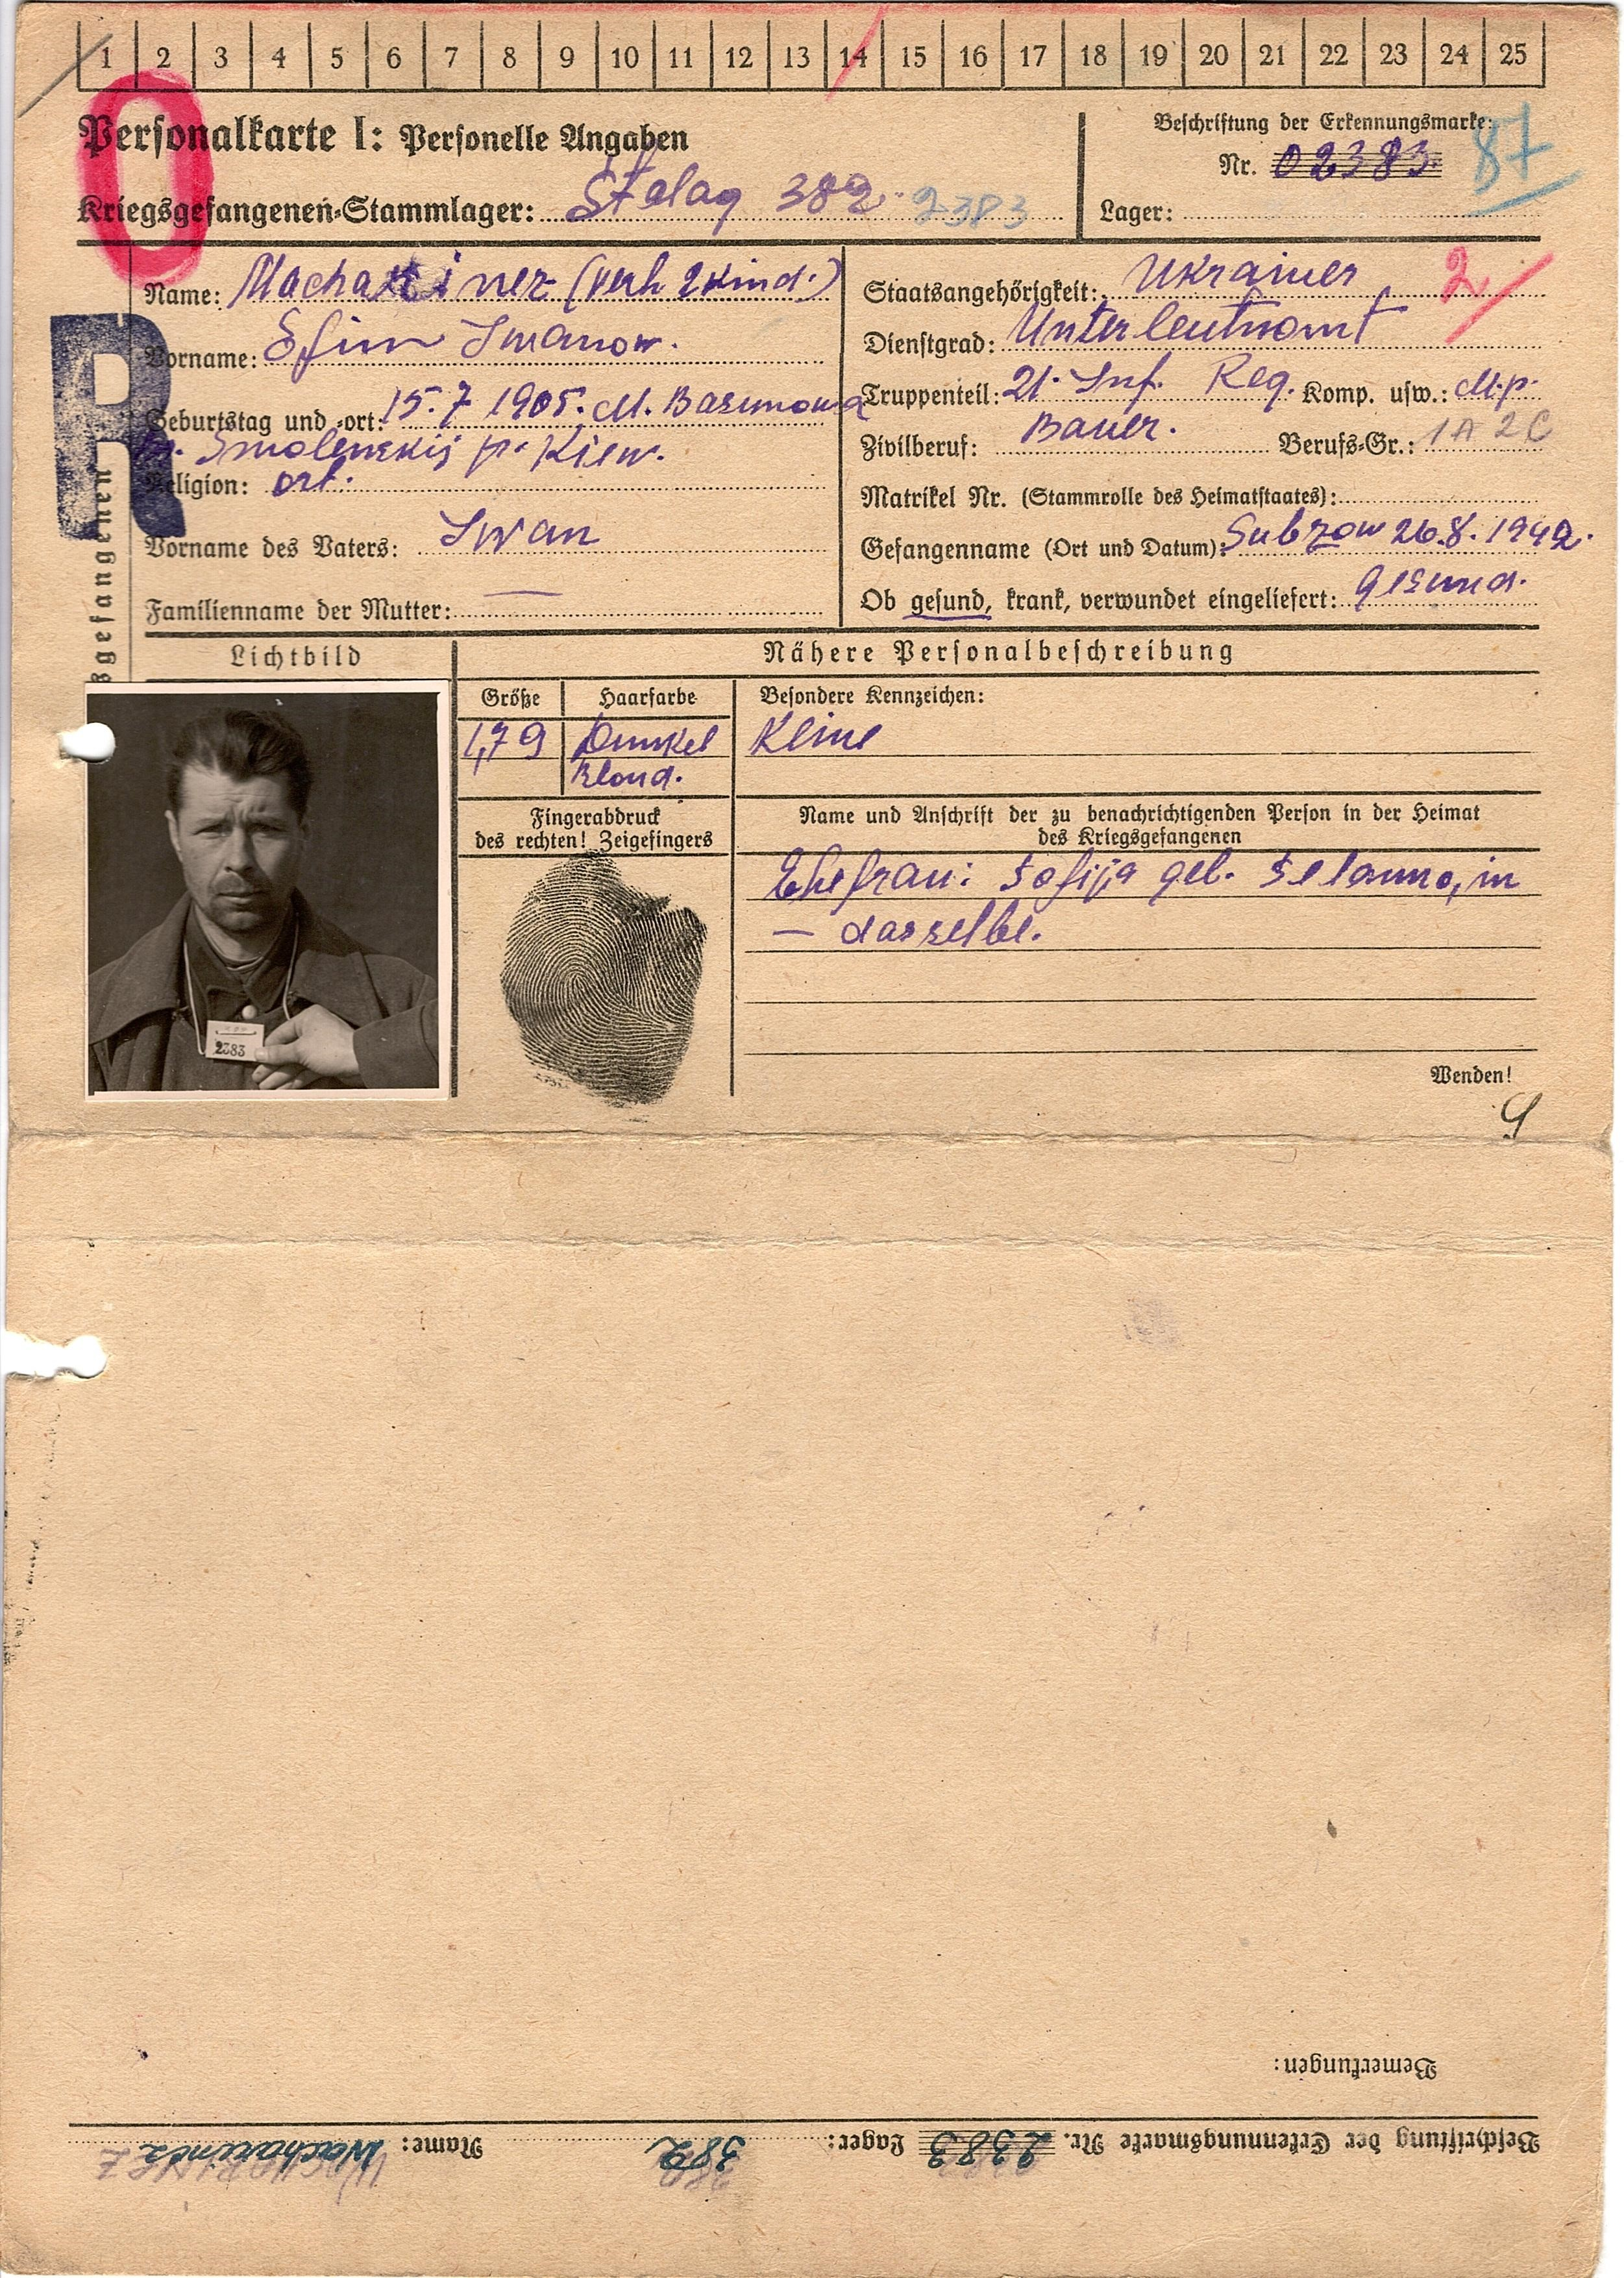 1 2 3 4 5 6 7 8 9 10 11 12 13 14 15 16 17 18 19 20 21 22 23 24 25
Personalkarte I: Personelle Angaben
Kriegsgefangenen-Stammlager: Stalag 382 2383
Beschriftung der Erkennungsmarke:
Nr. 02383
Lager:
Name: (verh. 2 Kind.)
Vorname: Efim Iwanow.
Geburtstag und -ort: 15.7 1905. M.
Smolenskij Kiew.
Religion: ort.
Vorname des Vaters: Iwan
Familienname der Mutter: —
R
Staatsangehörigkeit: Ukrainer 2
Dienstgrad: Unterleutnant
Truppenteil: 21. Inf. Reg. Komp. usw.: M.p.
Zivilberuf: Bauer. Berufs-Gr.: 1A 2C
Matrikel Nr. (Stammrolle des Heimatstaates):
Gefangenname (Ort und Datum): Subzow 26.8.1942.
Ob gesund, krank, verwundet eingeliefert: gesund.
Lichtbild
Nähere Personalbeschreibung
Größe Haarfarbe Besondere Kennzeichen:
1,79 Dunkel Keine
Blond.
Fingerabdruck
des rechten! Zeigefingers
Name und Anschrift der zu benachrichtigenden Person in der Heimat
des Kriegsgefangenen
Ehefrau: Sofija geb. in
— dasselbe.
2383
Wenden!
Bemerkungen:
Beschriftung der Erkennungsmarke Nr. 2383 Lager: 382 Name: Wacharinez